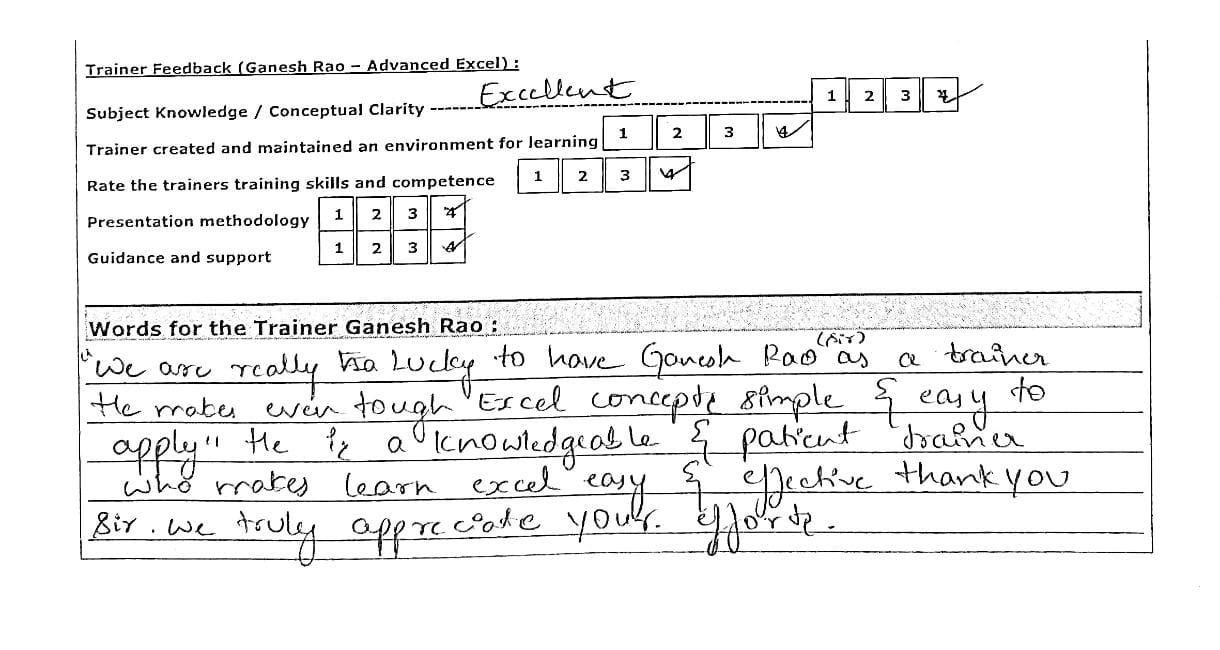 Trainer Feedback (Ganesh Rao – Advanced Excel) :
Subject Knowledge / Conceptual Clarity -------Excellent-------- 1 2 3 4
Trainer created and maintained an environment for learning 1 2 3 4
Rate the trainers training skills and competence 1 2 3 4
Presentation methodology 1 2 3 4
Guidance and support 1 2 3 4
Words for the Trainer Ganesh Rao :
(Sir)
"We are really Lucky to have Ganesh Rao as a trainer
He makes even tough Excel concepts simple & easy to
apply" He is a knowledgeable & patient trainer
who makes learn excel easy & effective thank you
Sir. we truly appreciate your. efforts.